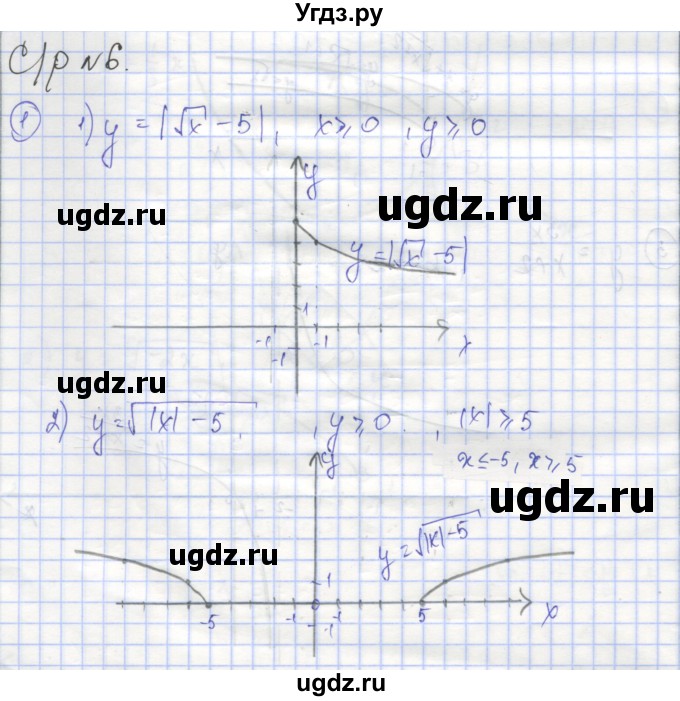 Угдз.ру
С/р №6.
① 1) y = |√x - 5|, x ≥ 0, y ≥ 0
ugdz.ru
ugdz.ru
y
y = |√x - 5|
1
-1 -1 1
x
ugdz.ru
2) y = √|x| - 5, , y ≥ 0. , |x| ≥ 5
x ≤ -5, x ≥ 5
ugdz.ru
y
ugdz.ru
y = √|x| - 5
1
-5 -1 0 1 5 x
-1
ugdz.ru